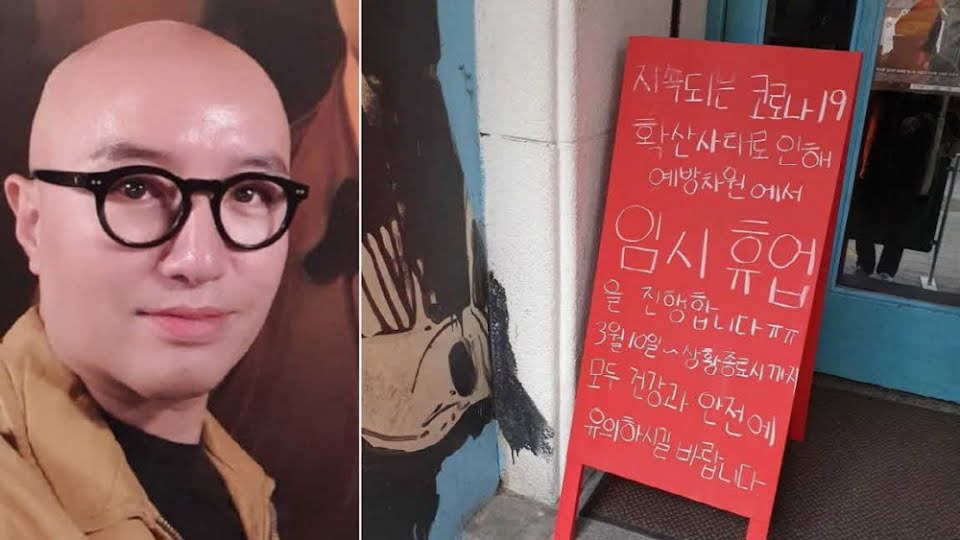 지속되는 코로나19
확산사태로 인해
예방차원에서
임시 휴업
을 진행합니다ㅠㅠ
3월10일~상황종료시까지
모두 건강과 안전에
유의하시길 바랍니다